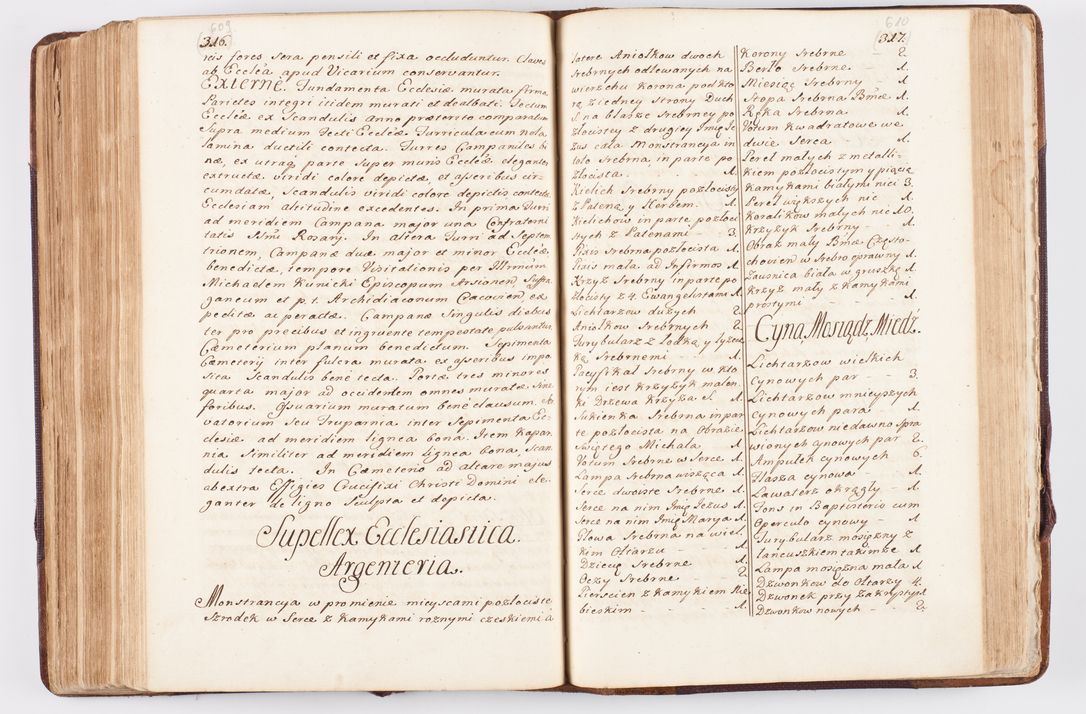 609
316.
ris fores sera pensili et fixa occluduntur. Claves
ab Ecclea apud Vicarium conservantur.
EXTERNE. Fundamenta Ecclesiæ murata firma.
Parietes integri itidem murati et dealbati. Tectum
Eccleiæ ex Scandulis Anno præterito comparatum
Supra medium Tecti Eccleiæ Turricula cum nola
lamina ductili contecta. Turres Campaniles bi
næ, ex utraq parte super muris Eccleiæ elegantes
extructæ viridi colore depictæ, et asseribus cir-
cumdatæ, Scandulis viridi colore depictis contectæ
Ecclesiam altitudine excedentes. In prima Turri
ad meridiem Campana major una Confraterni
tatis SSmi Rosary. In altera Turri ad Septem
trionem, Campanæ duæ major et minor Eccleiæ,
benedictæ, tempore Visitationis per Illrmum
Michaelem Kunicki Episcopum Arsionen, Suffra
ganeum et p. t. Archidiaconum Cracovien, ex
peditæ ac peractæ. Campanæ Singulis diebus
ter pro precibus et ingruente tempestate pulsantur.
Cæmeterium planum benedictum. Sepimenta
Cæmeterij inter fulcra murata ex asseribus impo
sita Scandulis bene tecta. Portæ tres minores
quarta major ad occidentem omnes muratæ sine
foribus. Ossuarium muratum bene clausum.
vatorium seu Truparnia inter Sepimenta Ec-
clesiæ ad meridiem lignea bona. Item Kapar
nia Similiter ad meridiem lignea bona, Scan
dulis tecta. In Cæmeterio ad altare majus
ab extra Effigies Crucifixi Christi Domini ele-
ganter de ligno Sculpta et depicta.
Supellex Ecclesiastica.
Argenteria.
Monstrancya w promienie mieyscami pozłociste
Szrodek w Serce z kamykami roznymi czeskiemi a
610
317.
latere Aniołkow dwoch
srebrnych odlewanych na
wierzchu korona pod kto
rą z iedney strony Duch
S. na blasze srebrney po
złocistey z drugiey Imię Je
zus cała Monstrancya in
toto Srebrna, in parte po
złocista. 1.
Kielich Srebrny pozłocisty
z Pateną y Herbem. 1.
Kielichow in parte pozłoci
stych z Patenami - 3.
Puszka Srebrna pozłocista 1.
Pixis mała ad Infirmos 1.
Krzyż Srebrny in parte po
złocisty z 4. Ewangelistami 1.
Lichtarzow duzych 2.
Aniołkow Srebrnych 2.
Turybularz z Łodką y łyzecz
ką Srebrnemi 1.
Pacyfikał Srebrny w kto
rym iest krzyżyk malen
ki Drzewa Krzyża S. 1.
Sukienka Srebrna in par
te pozłocista na Obrazie
Swiętego Michała 1.
Votum Srebrne w Serce 1.
Lampa Srebrna wisząca 1.
Serce dwoiste Srebrne 1.
Serce na nim Imię Jezus 1.
Serce na nim Imię Marya 1.
Głowa Srebrna na wiel.
kim Ołtarzu - 1.
Dziecię Srebrne 1.
Oczy Srebrne - 2.
Pierscien z kamykiem Nie
bieskim - 1.
Korony Srebrne 2.
Berło Srebrne 1.
Miesiąc Srebrny - 1.
Stopa Srebrna Bmæ 1.
Ręka Srebrna 1.
Votum kwadratowe we
dwie Serca - 1.
Pereł małych z metalli-
kiem pozłocistym y piącią
kamykami białymi nici 3.
Pereł większych nic 1.
Koralikow małych nic 10.
Krzyżyk Srebrny - 1.
Obraz mały Bmæ Często-
chovien w Srebro oprawny 1.
Zausnica biała w gruszkę 1.
Krzyż mały z kamykami
prostymi - 1.
Cyna, Mosiądz, Miedź.
Lichtarzow wielkich
cynowych par - 3.
Lichtarzow mnieyszych
cynowych para - 1.
Lichtarzow niedawno spra
wionych cynowych par 2.
Ampułek cynowych - 6.
Flasza cynowa - 1.
Lawaterz okrągły - 1.
Fons in Baptisterio cum
Operculo cynowy - 1.
Turybularz mosiężny z
łancuszkiem takimże 1.
Lampa mosiężna mała 1
Dzwonkow do Ołtarzy 4.
Dzwonek przy Zakrystyi 1.
Dzwonkow nowych - 2.